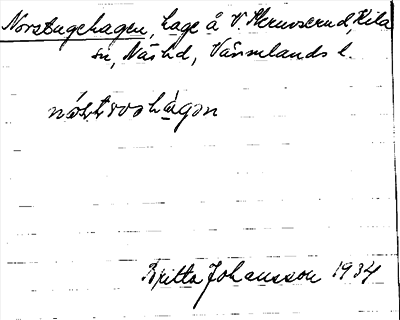 Norstugehagen, hage å V. Hruvserud, Kila
sn, Näs hd, Värmlands l.
nós̀tsvohàgən
Britta Johansson 1934